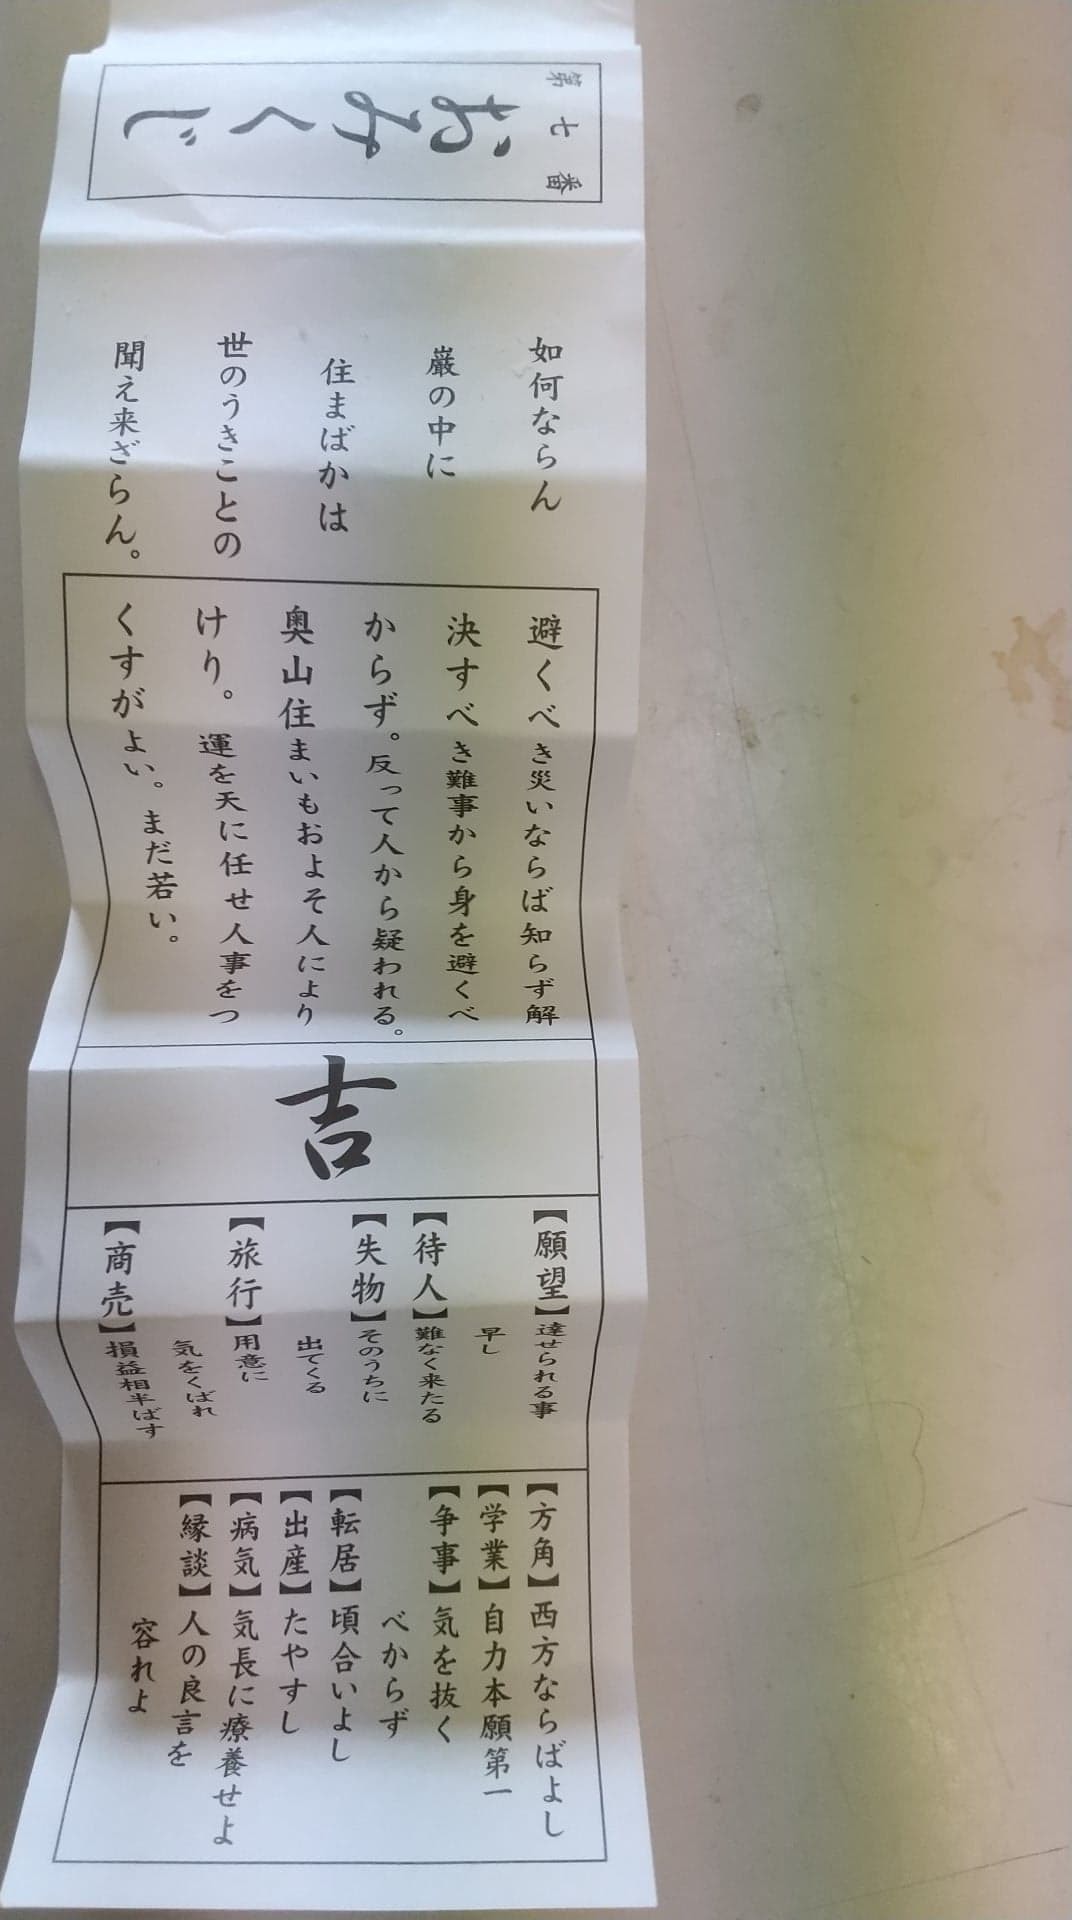 第七番
おみくじ
如何ならん
巌の中に
住まばかは
世のうきことの
聞え来ざらん。
避くべき災いならば知らず解
決すべき難事から身を避くべ
からず。反って人から疑われる。
奥山住まいもおよそ人により
けり。運を天に任せ人事をつ
くすがよい。まだ若い。
吉
【願望】達せられる事
早し
【待人】難なく来たる
【失物】そのうちに
出てくる
【旅行】用意に
気をくばれ
【商売】損益相半ばす
【方角】西方ならばよし
【学業】自力本願第一
【争事】気を抜く
べからず
【転居】頃合いよし
【出産】たやすし
【病気】気長に療養せよ
【縁談】人の良言を
容れよ